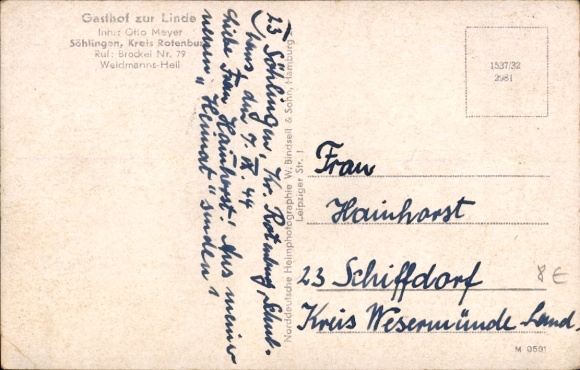 Gasthof zur Linde
Inh.: Otto Meyer
Söhlingen, Kreis Rotenburg
Ruf: Brockel Nr. 79
Weidmanns-Heil
23 Söhlingen, Kr. Rotenburg, Schul-
haus den 7. IX. 44
Liebe Frau Hainhorst! Aus meiner
neuen "Heimat" senden
Norddeutsche Heimphotographie W. Bindseil & Sohn, Hamburg
Leipziger Str. 1
1537/32
2981
Frau
Hainhorst
23 Schiffdorf
Kreis Wesermünde Land.
8 E
M 0591